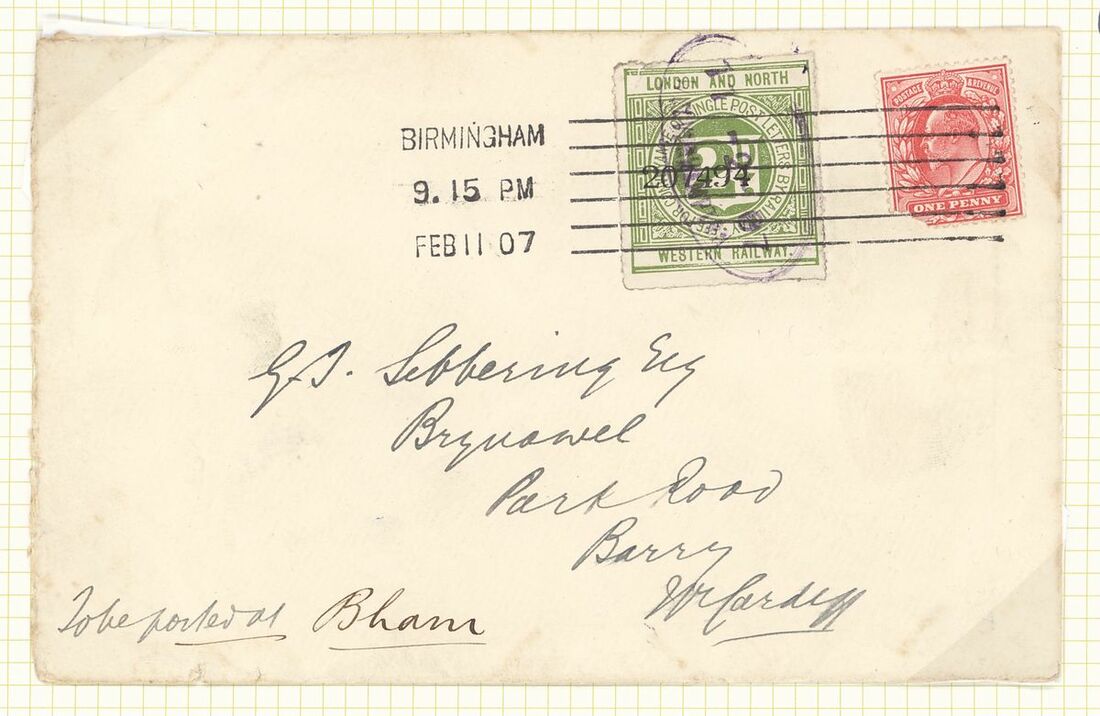 BIRMINGHAM
9.15 PM
FEB 11 07
LONDON AND NORTH
SINGLE POST LETTERS BY RAILWAY
207494
WESTERN RAILWAY.
POSTAGE & REVENUE
ONE PENNY
G.J. Sebbering Esq
Brynawel
Park Road
Barry
Nr Cardiff
To be posted at Bham